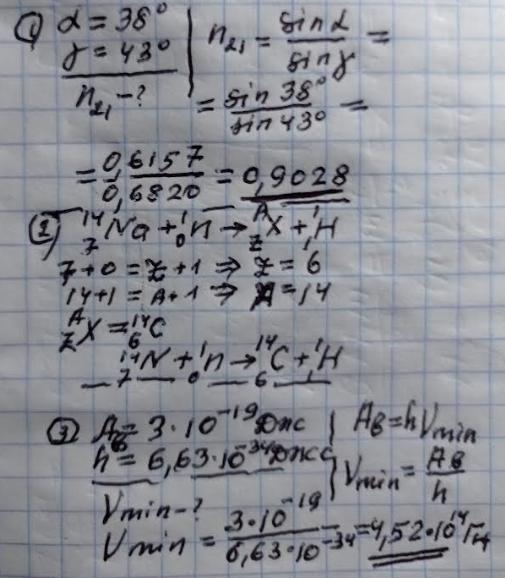 ① α = 38° | n₂₁ = sin α / sin γ =
γ = 43°
n₂₁ - ? = sin 38° / sin 43° =
= 0,6157 / 0,6820 = 0,9028
② ¹⁴₇Na + ¹₀n → ᴬ_ZX + ¹₁H
7 + 0 = Z + 1 ⇒ Z = 6
14 + 1 = A + 1 ⇒ A = 14
ᴬ_ZX = ¹⁴₆C
¹⁴₇N + ¹₀n → ¹⁴₆C + ¹₁H
③ Aв = 3·10⁻¹⁹ Дж | Aв = hνmin
h = 6,63·10⁻³⁴ Дж·с | νmin = Aв / h
νmin - ?
νmin = 3·10⁻¹⁹ / 6,63·10⁻³⁴ = 4,52·10¹⁴ Гц